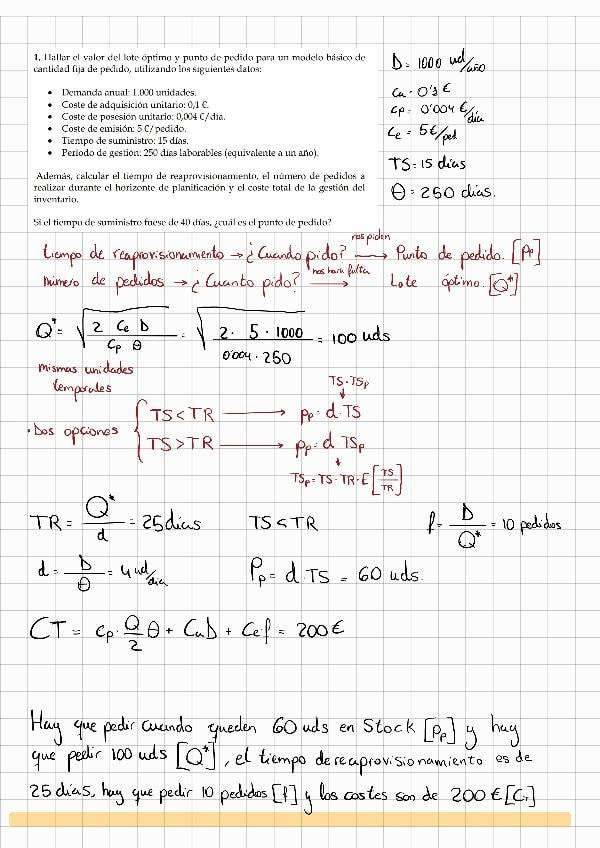 1. Hallar el valor del lote óptimo y punto de pedido para un modelo básico de
cantidad fija de pedido, utilizando los siguientes datos:
• Demanda anual: 1.000 unidades.
• Coste de adquisición unitario: 0,1 €.
• Coste de posesión unitario: 0,004 €/día.
• Coste de emisión: 5 €/pedido.
• Tiempo de suministro: 15 días.
• Período de gestión: 250 días laborables (equivalente a un año).
Además, calcular el tiempo de reaprovisionamiento, el número de pedidos a
realizar durante el horizonte de planificación y el coste total de la gestión del
inventario.
Si el tiempo de suministro fuese de 40 días, ¿cuál es el punto de pedido?
D = 1000 ud/año
Ca = 0'1 €
Cp = 0'004 €/día
Ce = 5€/ped
TS = 15 días
θ = 250 días.
tiempo de reaprovisionamiento → ¿Cuando pido? nos piden → Punto de pedido. [Pp]
número de pedidos → ¿Cuanto pido? nos hará falta → Lote óptimo. [Q*]
Q* = √(2 Ce D / Cp θ) = √(2 · 5 · 1000 / 0'004 · 250) = 100 uds
mismas unidades
temporales
TS · TSp
• Dos opciones { TS < TR → Pp = d · TS
TS > TR → Pp = d · TSp
TSp = TS - TR · E [TS/TR]
TR = Q*/d = 25 días TS < TR f = D/Q* = 10 pedidos
d = D/θ = 4 ud/día Pp = d · TS = 60 uds.
CT = Cp · Q/2 θ + Ca D + Ce f = 200 €
Hay que pedir cuando queden 60 uds en Stock [Pp] y hay
que pedir 100 uds [Q*], el tiempo de reaprovisionamiento es de
25 días, hay que pedir 10 pedidos [f] y los costes son de 200 € [CT]